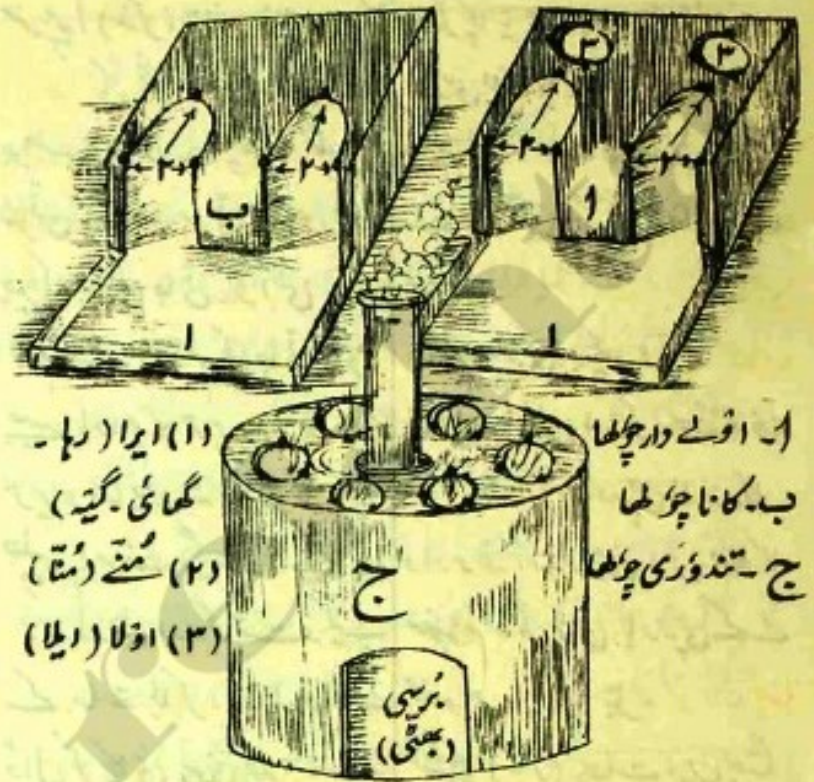 ۳ ۳
۲ ۲
۲ ۲
ب
ا
ا
ا
ا۔ اوٗلے دار چوٗلھا
ب۔ کانا چوٗلھا
ج۔ تندوٗری چوٗلھا
(۱) ایرا (رہا۔
گھائی۔ گیتہ)
(۲) مُنّے (مُنّا)
(۳) اوٗلا (ریلا)
ج
بُرسی
(بھٹّی)